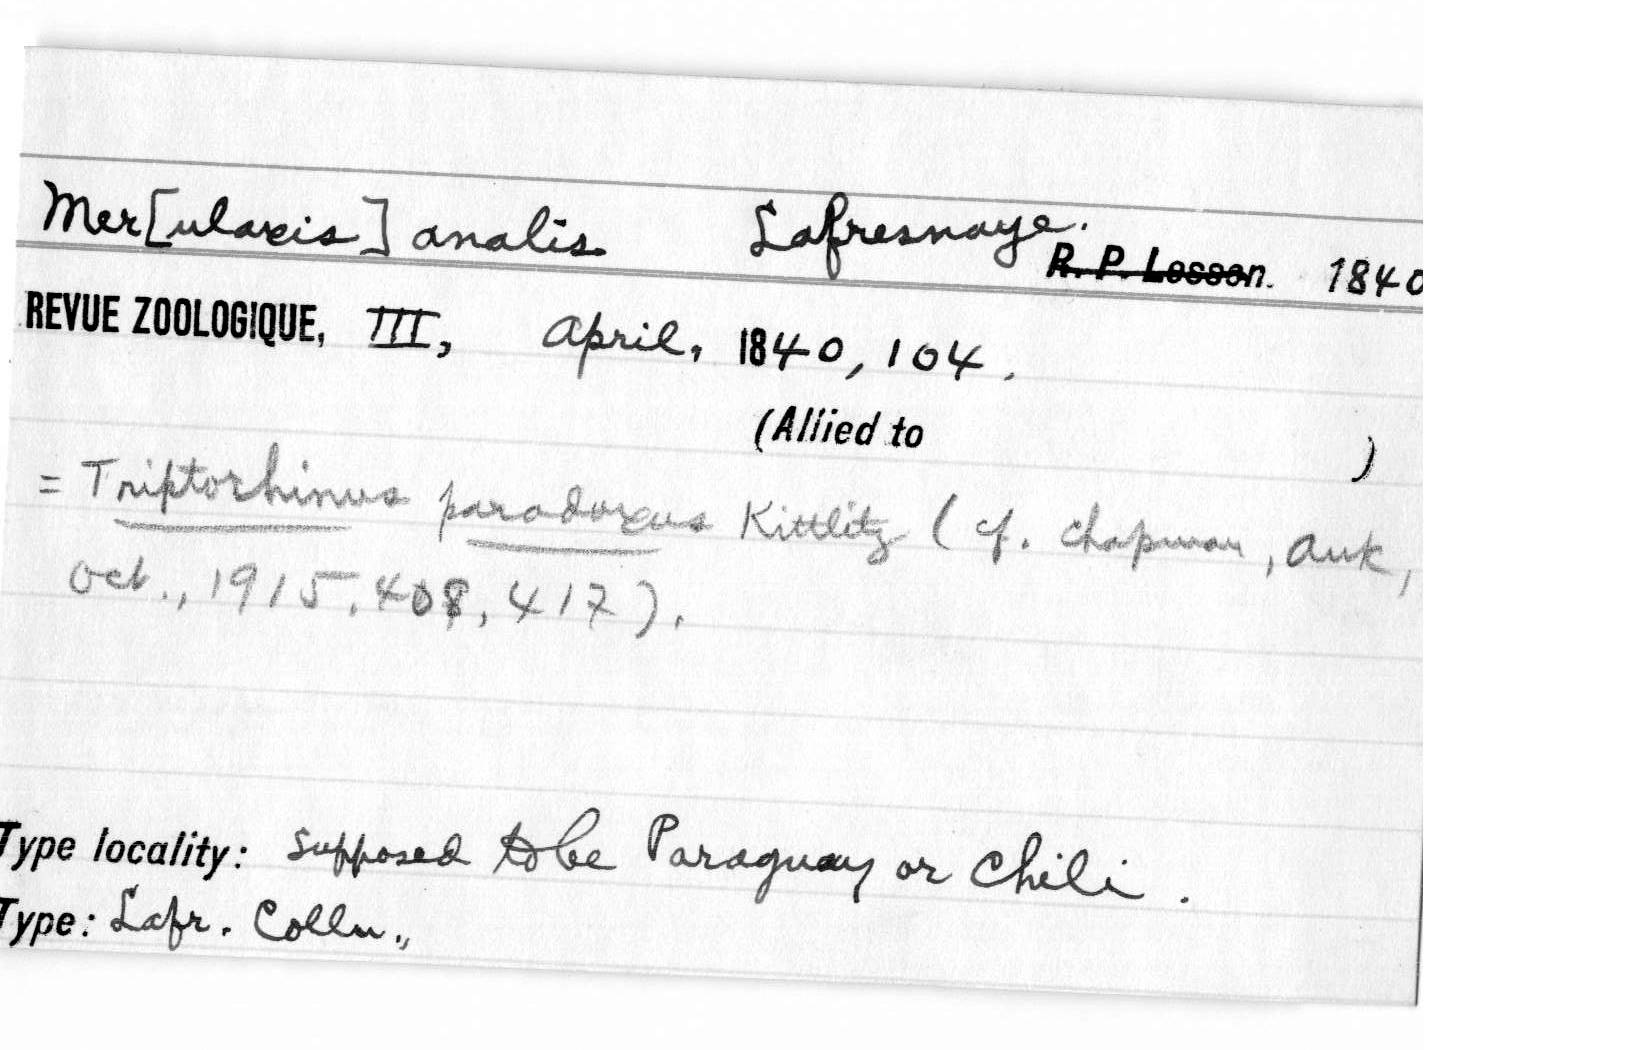 Mer[ulaxis] analis Lafresnaye. R. P. Lesson. 1840
REVUE ZOOLOGIQUE, III, April, 1840, 104.
(Allied to )
= Triptorhinus paradoxus Kittlitz (cf. Chapman, Auk,
Oct., 1915, 408, 417).
Type locality: Supposed to be Paraguay or Chili.
Type: Lafr. Colln.,